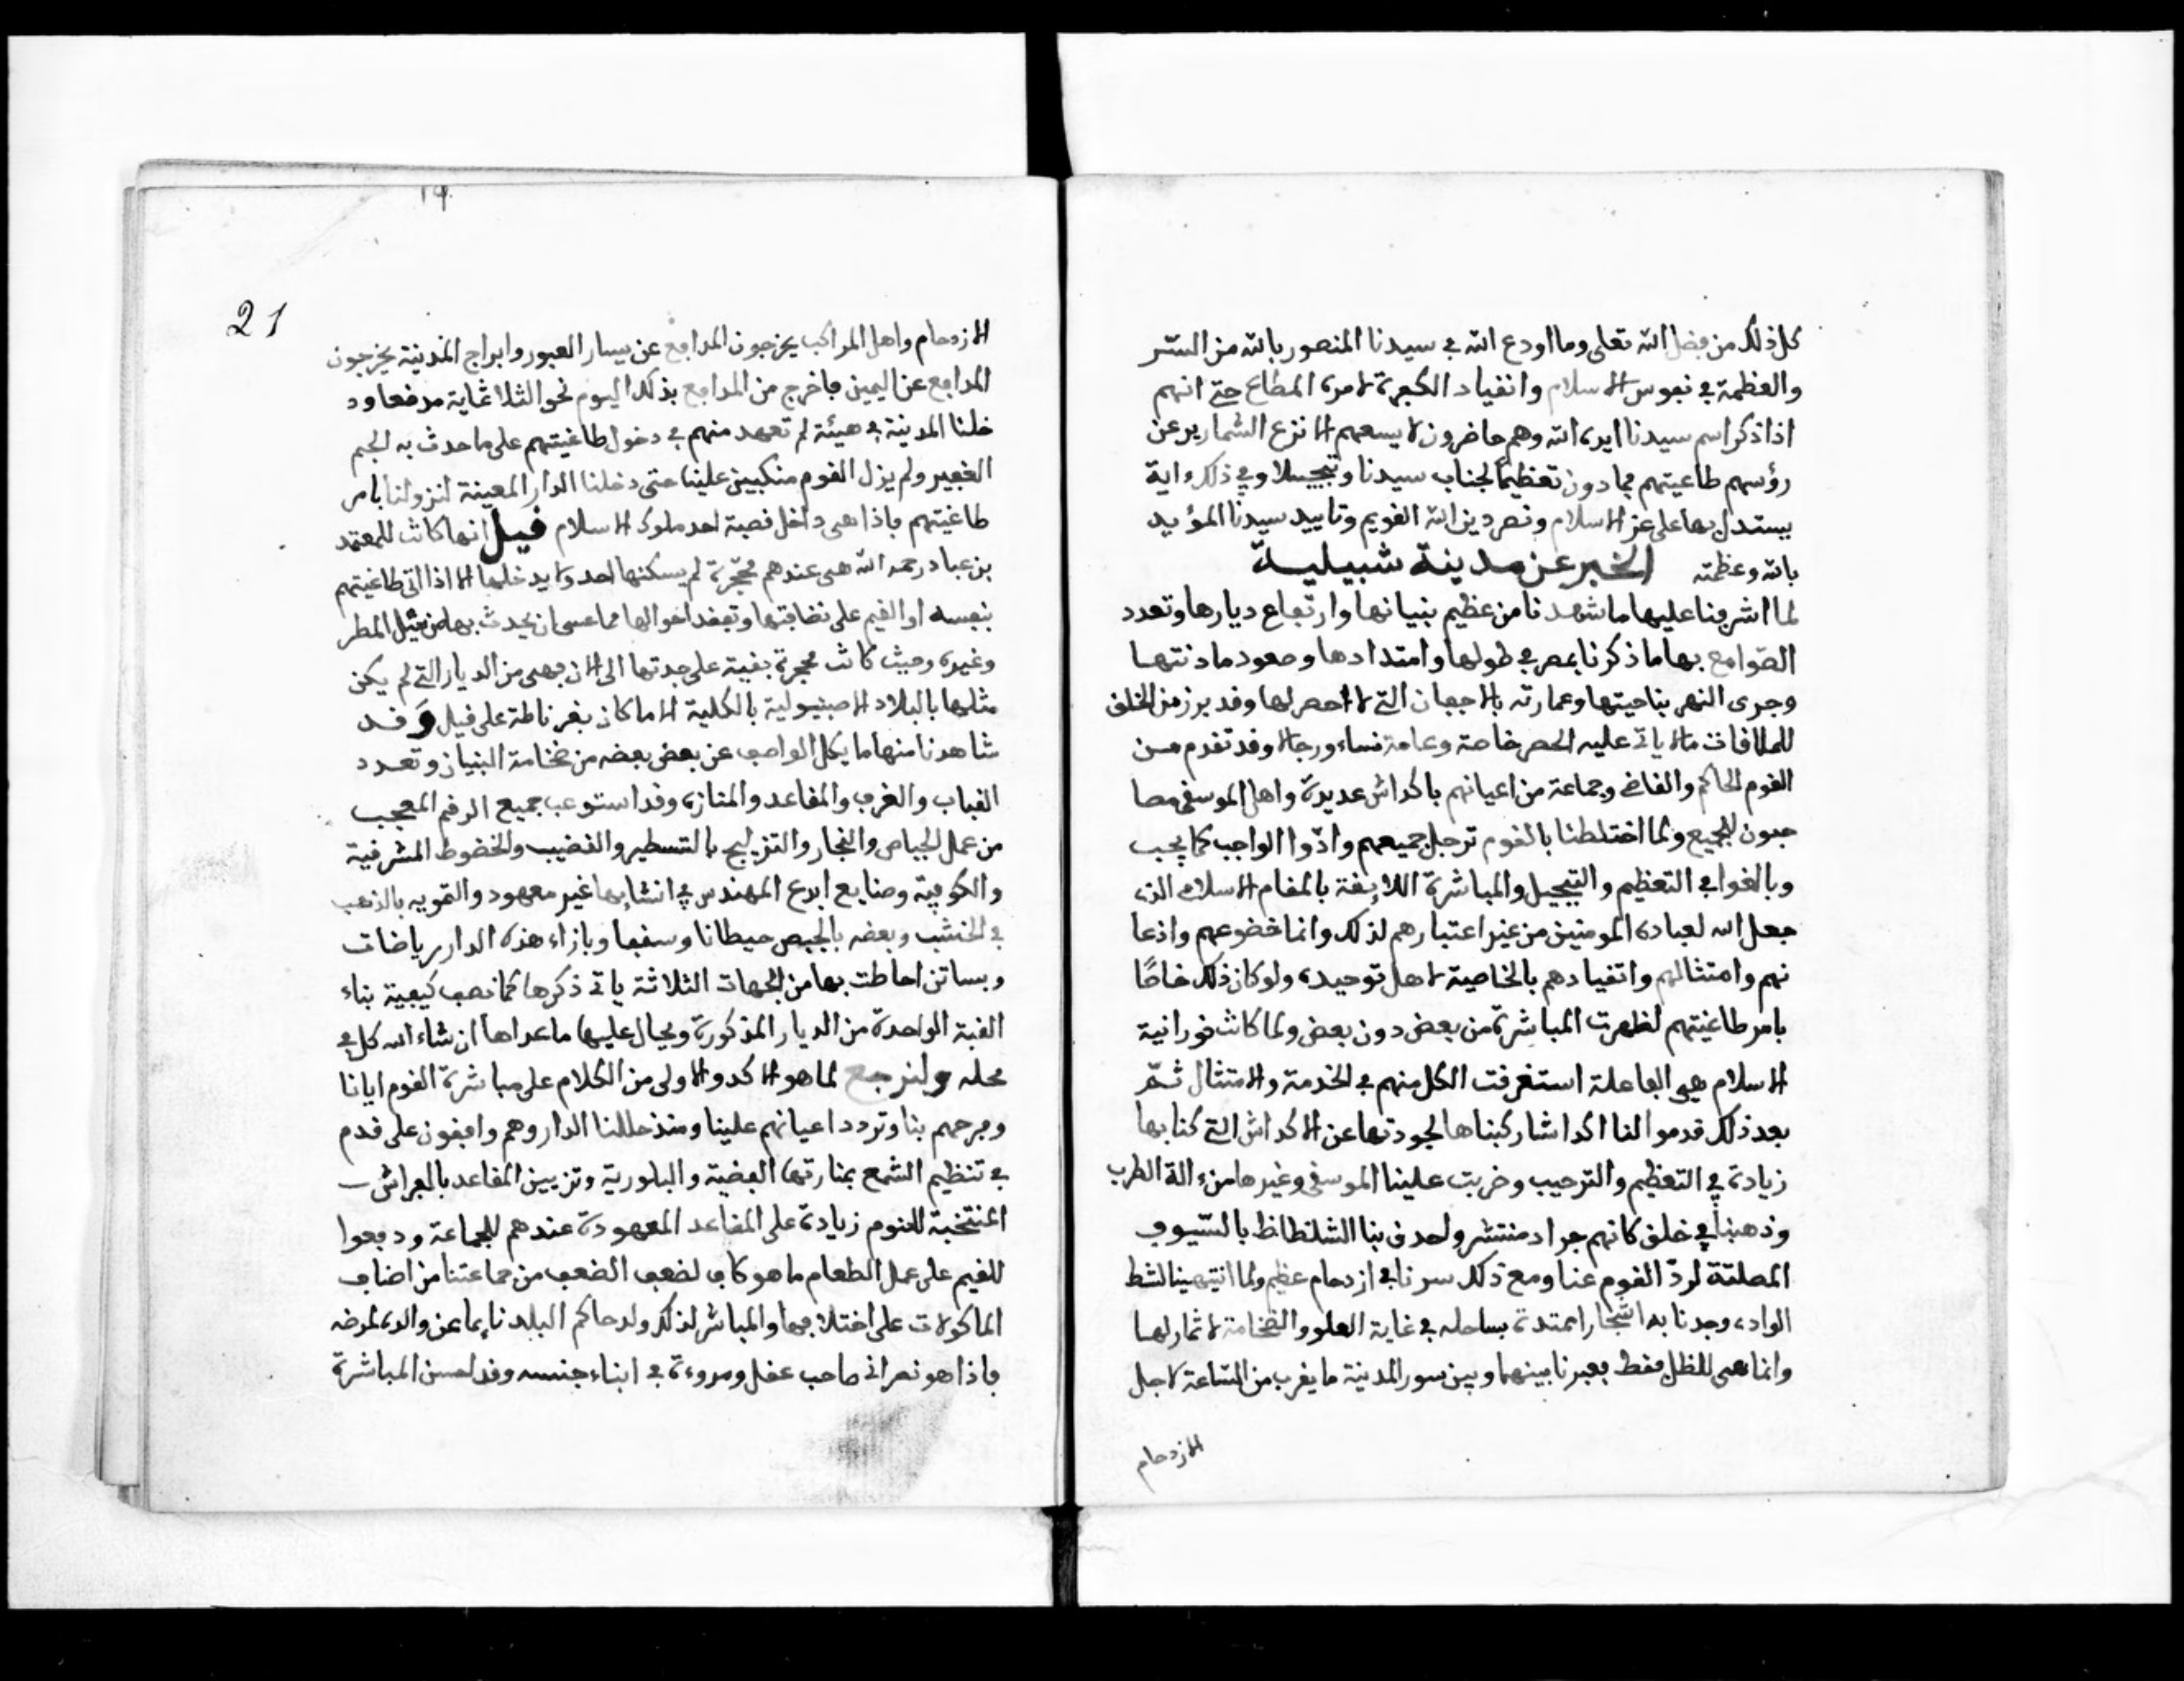 كل ذلك من فضل الله تعلى وما اودع الله في سيدنا المنصور بالله من السر
والعظمة في نفوس الاسلام وانقياد الكفرة لامره المطاع حتى انهم
اذا ذكر اسم سيدنا ايده الله وهم حاضرون لا يسعهم الا نزع الشمارير عن
رؤسهم طاغيتهم فما دون تعظيما لجناب سيدنا وتبجيلا وفي ذلك ءاية
يستدل بها على عز الاسلام ونصر دين الله القويم وتاييد سيدنا المؤيد
بالله وعظمته الخبر عن مدينة شبيلية
لما اشرفنا عليها ما شهدنا من عظيم بنيانها وارتفاع ديارها وتعدد
الصوامع بها ما ذكرنا بمصر في طولها وامتدادها وصعود ماذنتها
وجرى النهر بناحيتها وعمارته بالاجفان التي لا احصر لها وقد برز من الخلق
للملاقات ما لا ياتي عليه الحصر خاصة وعامة نساء ورجالا وقد تقدم من
القوم الحاكم والقاضي وجماعة من اعيانهم باكداش عديدة واهل الموسقى مصا
حبون للجميع ولما اختلطنا بالقوم ترجل جميعهم وادوا الواجب كما يجب
وبالغوا في التعظيم والتبجيل والمباشرة اللايقة بالمقام الاسلامي الذي
جعل الله لعباده المومنين من غير اعتبارهم لذلك وانما خضوعهم واذعا
نهم وامتثالهم وانقيادهم بالخاصية لاهل توحيده ولو كان ذلك خاصا
بامر طاغيتهم لظهرت المباشرة من بعض دون بعض ولما كانت نورانية
الاسلام هي الفاعلة استغرقت الكل منهم في الخدمة والامتثال ثم
بعد ذلك قدموا لنا اكداشا ركبناها لجودتها عن الاكداش التي كنا بها
زيادة في التعظيم والترحيب وضربت علينا الموسقى وغيرها من ءالة الطرب
وذهبنا في خلق كانهم جراد منتشر واحدق بنا الشلظاظ بالسيوف
المصلتة لرد القوم عنا ومع ذلك سرنا في ازدحام عظيم ولما انتهينا لشط
الوادي وجدنا به اشجارا ممتدة بساحله في غاية العلو والضخامة لا ثمار لها
وانما هي للظل فقط فعبرنا بينهما وبين سور المدينة ما يقرب من الساعة لاجل
الازدحام
19
21
الازدحام واهل المراكب يخرجون المدافع عن يسار العبور وابراج المدينة يخرجون
المدافع عن اليمين فاخرج من المدافع بذلك اليوم نحو الثلاثماية مدفعا ود
خلنا المدينة في هيئة لم تعهد منهم في دخول طاغيتهم على ما حدث به الجم
الغفير ولم يزل القوم منكبين علينا حتى دخلنا الدار المعينة لنزولنا بامر
طاغيتهم فاذا هي داخل قصبة احد ملوك الاسلام قيل انها كانت للمعتمد
بن عباد رحمه الله هي عندهم محجرة لم يسكنها احد ولا يدخلها الا اذا اتى طاغيتهم
بنفسه او القيم على نضافتها وتفقد احوالها مما عسى ان يحدث بها من قبل المطر
وغيره وحيث كانت محجرة بقية على جدتها الى الان فهي من الديار التي لم يكن
مثلها بالبلاد الاصبنيولية بالكلية الا ما كان بغرناطة على قيل وقد
شاهدنا منها ما يكل الواصف عن بعض بعضه من ضخامة البنيان وتعدد
القباب والغرف والمقاعد والمنازه وقد استوعب جميع الرقم المعجب
من عمل الجباص والنجار والتزليج بالتسطير والقضيب والخضوط المشرقية
والكوفية وصنايع ابدع المهندس في انشايها غير معهود والتمويه بالذهب
في الخشب وبعضه بالجبص حيطانا وسقفا وبازاء هذه الدار رياضات
وبساتن احاطت بها من الجهات الثلاثة ياتي ذكرها كما نصف كيفية بناء
القبة الواحدة من الديار المذكورة ويحال عليها ما عداها ان شاء الله كل في
محله ولنرجع لما هو الاكد والاولى من الكلام على مباشرة القوم ايانا
وفرحهم بنا وتردد اعيانهم علينا ومنذ حللنا الدار وهم واقفون على قدم
في تنظيم الشمع بمنارتها الفضية والبلورية وتزيين المقاعد بالفراش
المنتخبة للنوم زيادة على المقاعد المعهودة عندهم للجماعة ودفعوا
للقيم على عمل الطعام ما هو كاف لضعف الضعف من جماعتنا من اضاف
الماكولات على اختلافها والمباشر لذلك ولد حاكم البلد نايبا عن والده لمرضه
فاذا هو نصراني صاحب عقل ومروءة في ابناء جنسه وقد احسن المباشرة